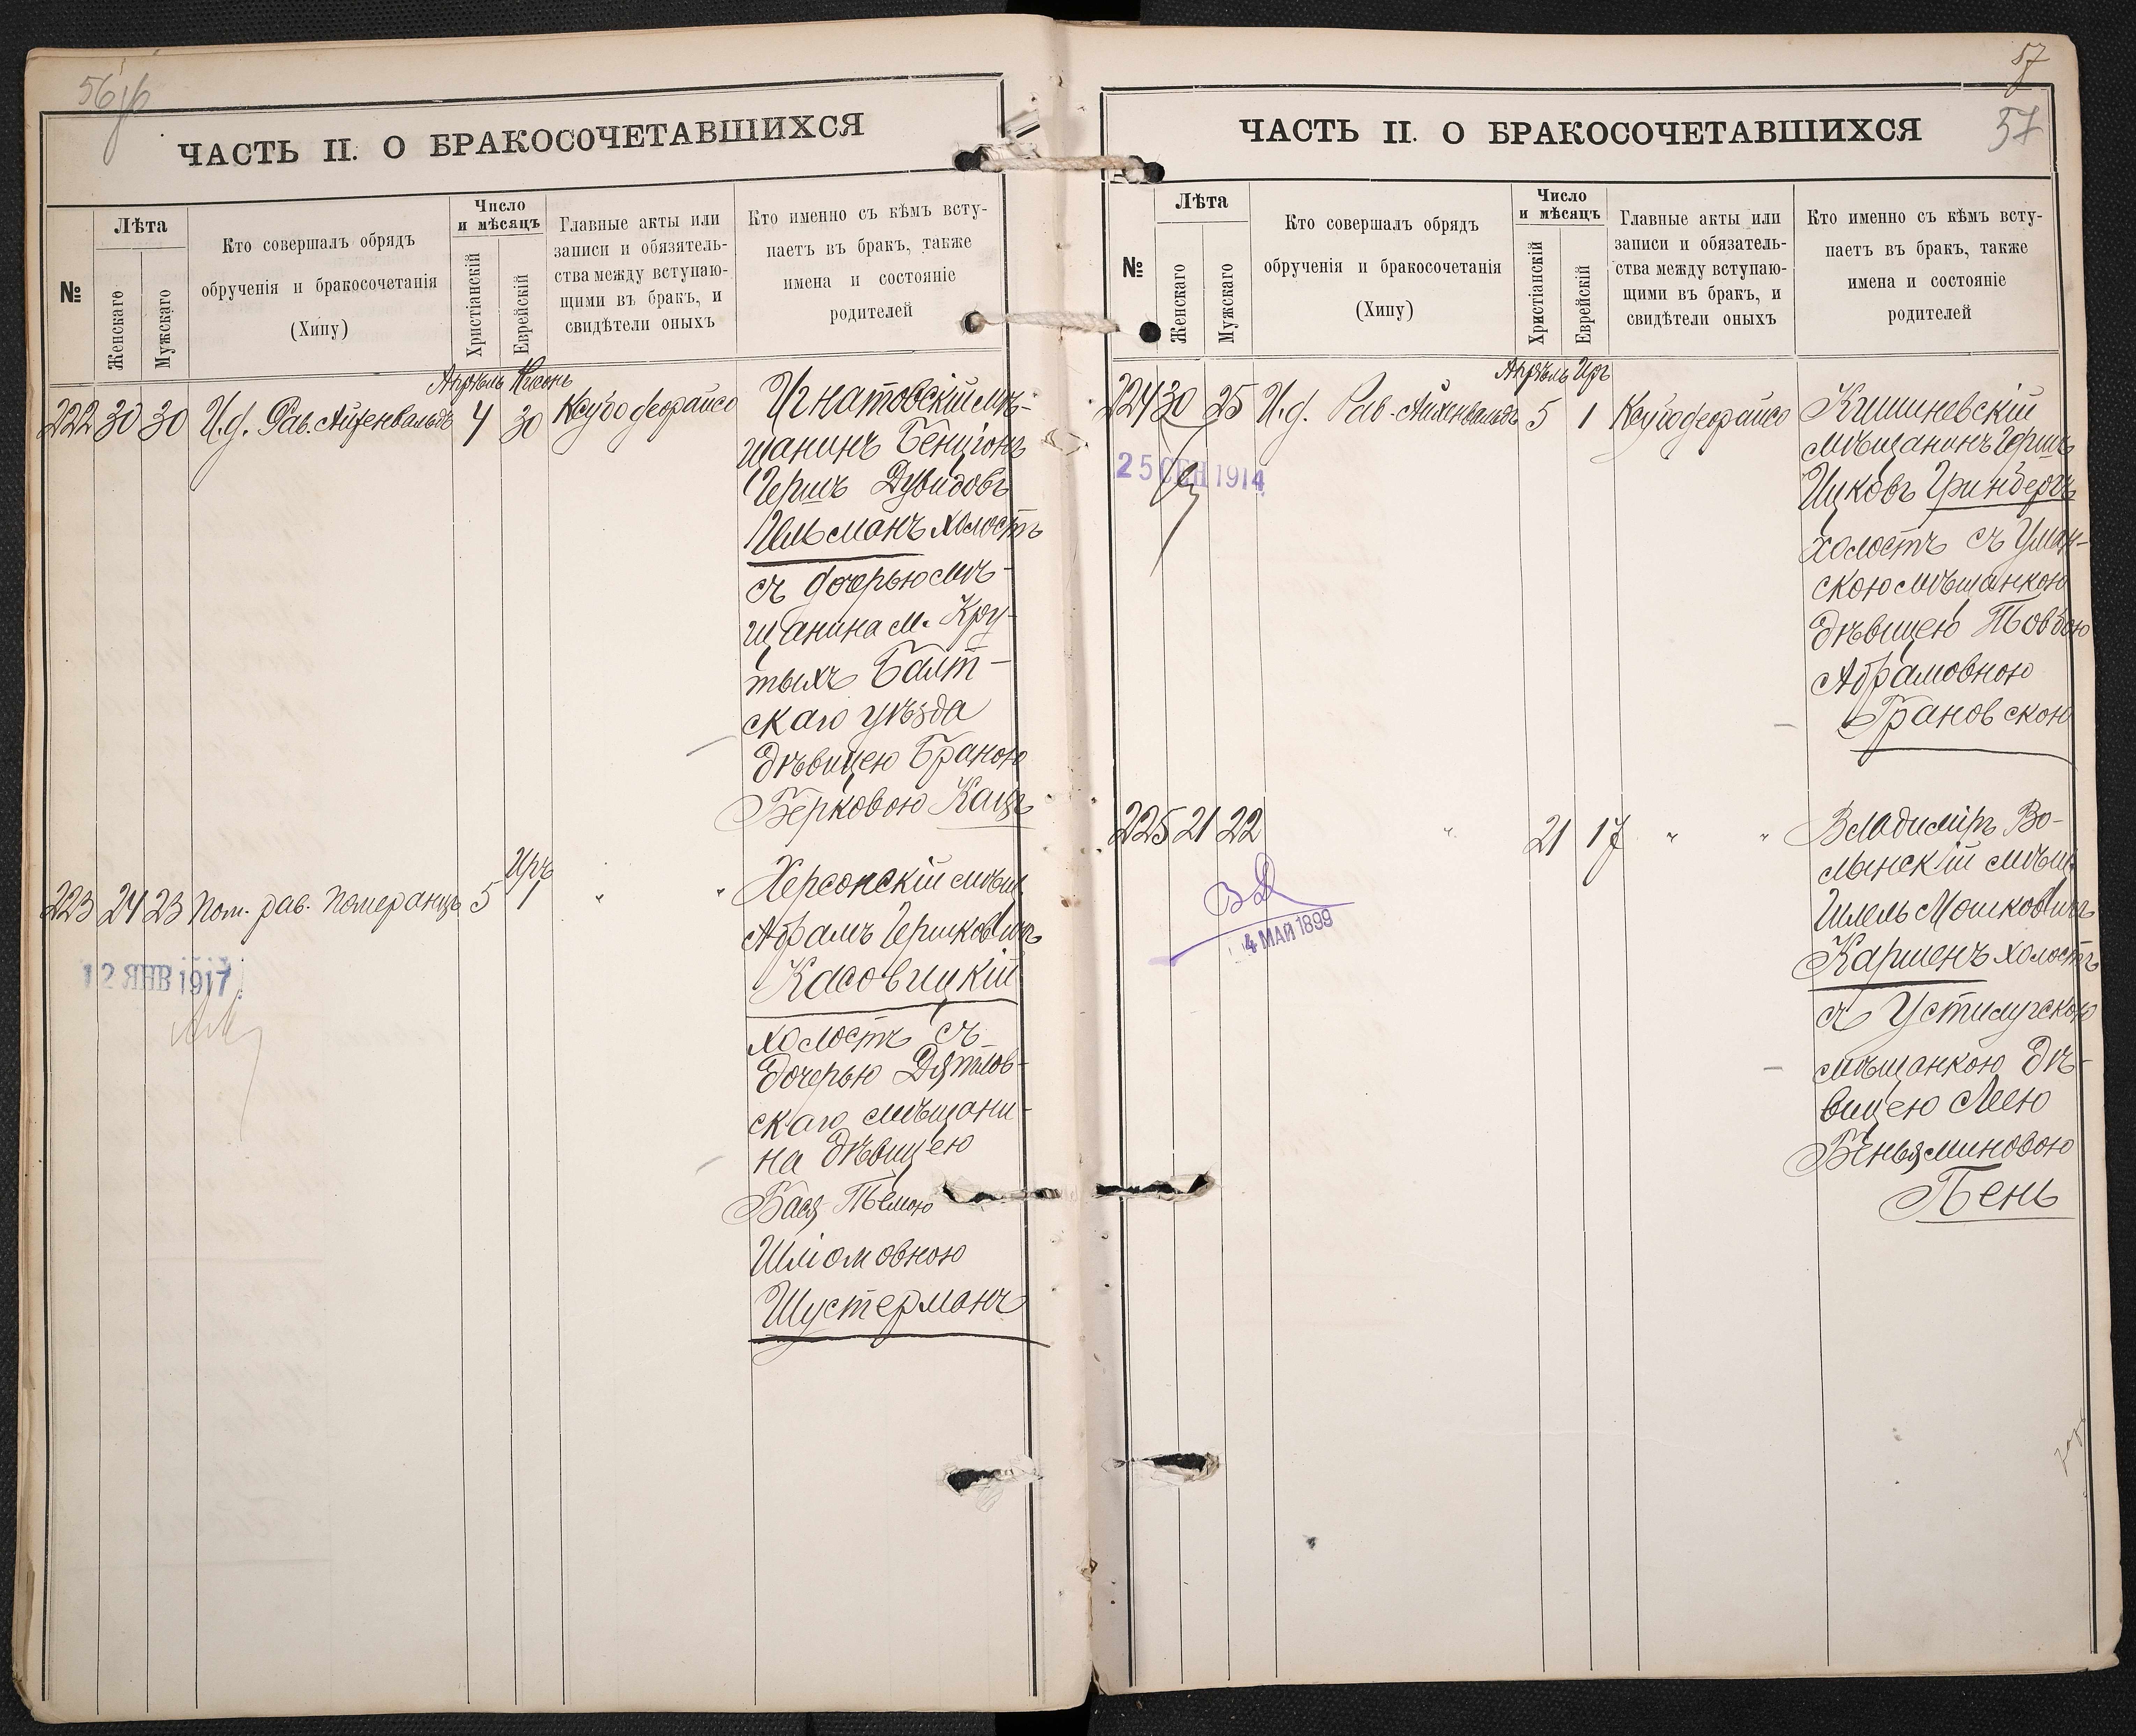 56 об
ЧАСТЬ II. О БРАКОСОЧЕТАВШИХСЯ
№
Лѣта
Женскаго
Мужскаго
Кто совершалъ обрядъ
обрученія и бракосочетанія
(Хипу)
Число
и мѣсяцъ
Христіанскій
Еврейскій
Главные акты или
записи и обязятель-
ства между вступаю-
щими въ бракъ, и
свидѣтели оныхъ
Кто именно съ кѣмъ всту-
паетъ въ бракъ, также
имена и состояніе
родителей
Апрѣль Нисонъ
222 30 30 И.д. Рав. Айхенвальдъ 4 30 Ксубо деорайсо
Игнатовскій мѣ-
щанинъ Бенціонъ
Гершъ Дувидовъ
Гельманъ холостъ
съ дочерью мѣ-
щанина м. Кру-
тыхъ Балт-
скаго уѣзда
дѣвицею Браною
Берковою Кацъ
Иръ
223 24 23 Пом. рав. Померанцъ 5 1 " "
Херсонскій мѣщ.
Абрамъ Гершковичъ
Касовицкій
холостъ съ
дочерью Дятлов-
скаго мѣщани-
на дѣвицею
Бася Темою
Шліомовною
Шустерманъ
12 ЯНВ 1917
57
57
ЧАСТЬ II. О БРАКОСОЧЕТАВШИХСЯ
№
Лѣта
Женскаго
Мужскаго
Кто совершалъ обрядъ
обрученія и бракосочетанія
(Хипу)
Число
и мѣсяцъ
Христіанскій
Еврейскій
Главные акты или
записи и обязатель-
ства между вступаю-
щими въ бракъ, и
свидѣтели оныхъ
Кто именно съ кѣмъ всту-
паетъ въ бракъ, также
имена и состояніе
родителей
Апрѣль Иръ
224 30 25 И.д. Рав. Айхенвальдъ 5 1 Ксубо деорайсо
25 СЕН 1914
Кишиневскій
мѣщанинъ Гершъ
Ицковъ Гринбергъ
холостъ съ Уман-
скою мѣщанкою
дѣвицею Товбою
Абрамовною
Грановскою
225 21 22 " 21 17 " "
4 МАЙ 1899
Владиміръ Во-
лынскій мѣщ.
Шлель Мошковичъ
Каршенъ холостъ
съ Устилугскою
мѣщанкою дѣ-
вицею Леею
Беньяминовою
Бень